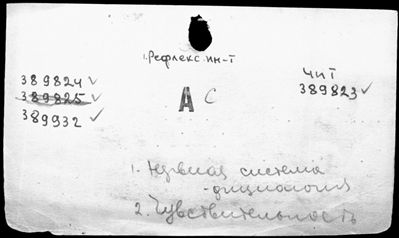 1. Рефлекс. ин-т
389824 ✓
389825 ✓
389932 ✓
А С
ЧИТ
389823 ✓
1. Нервная система
- физиология
2. Чувствительность